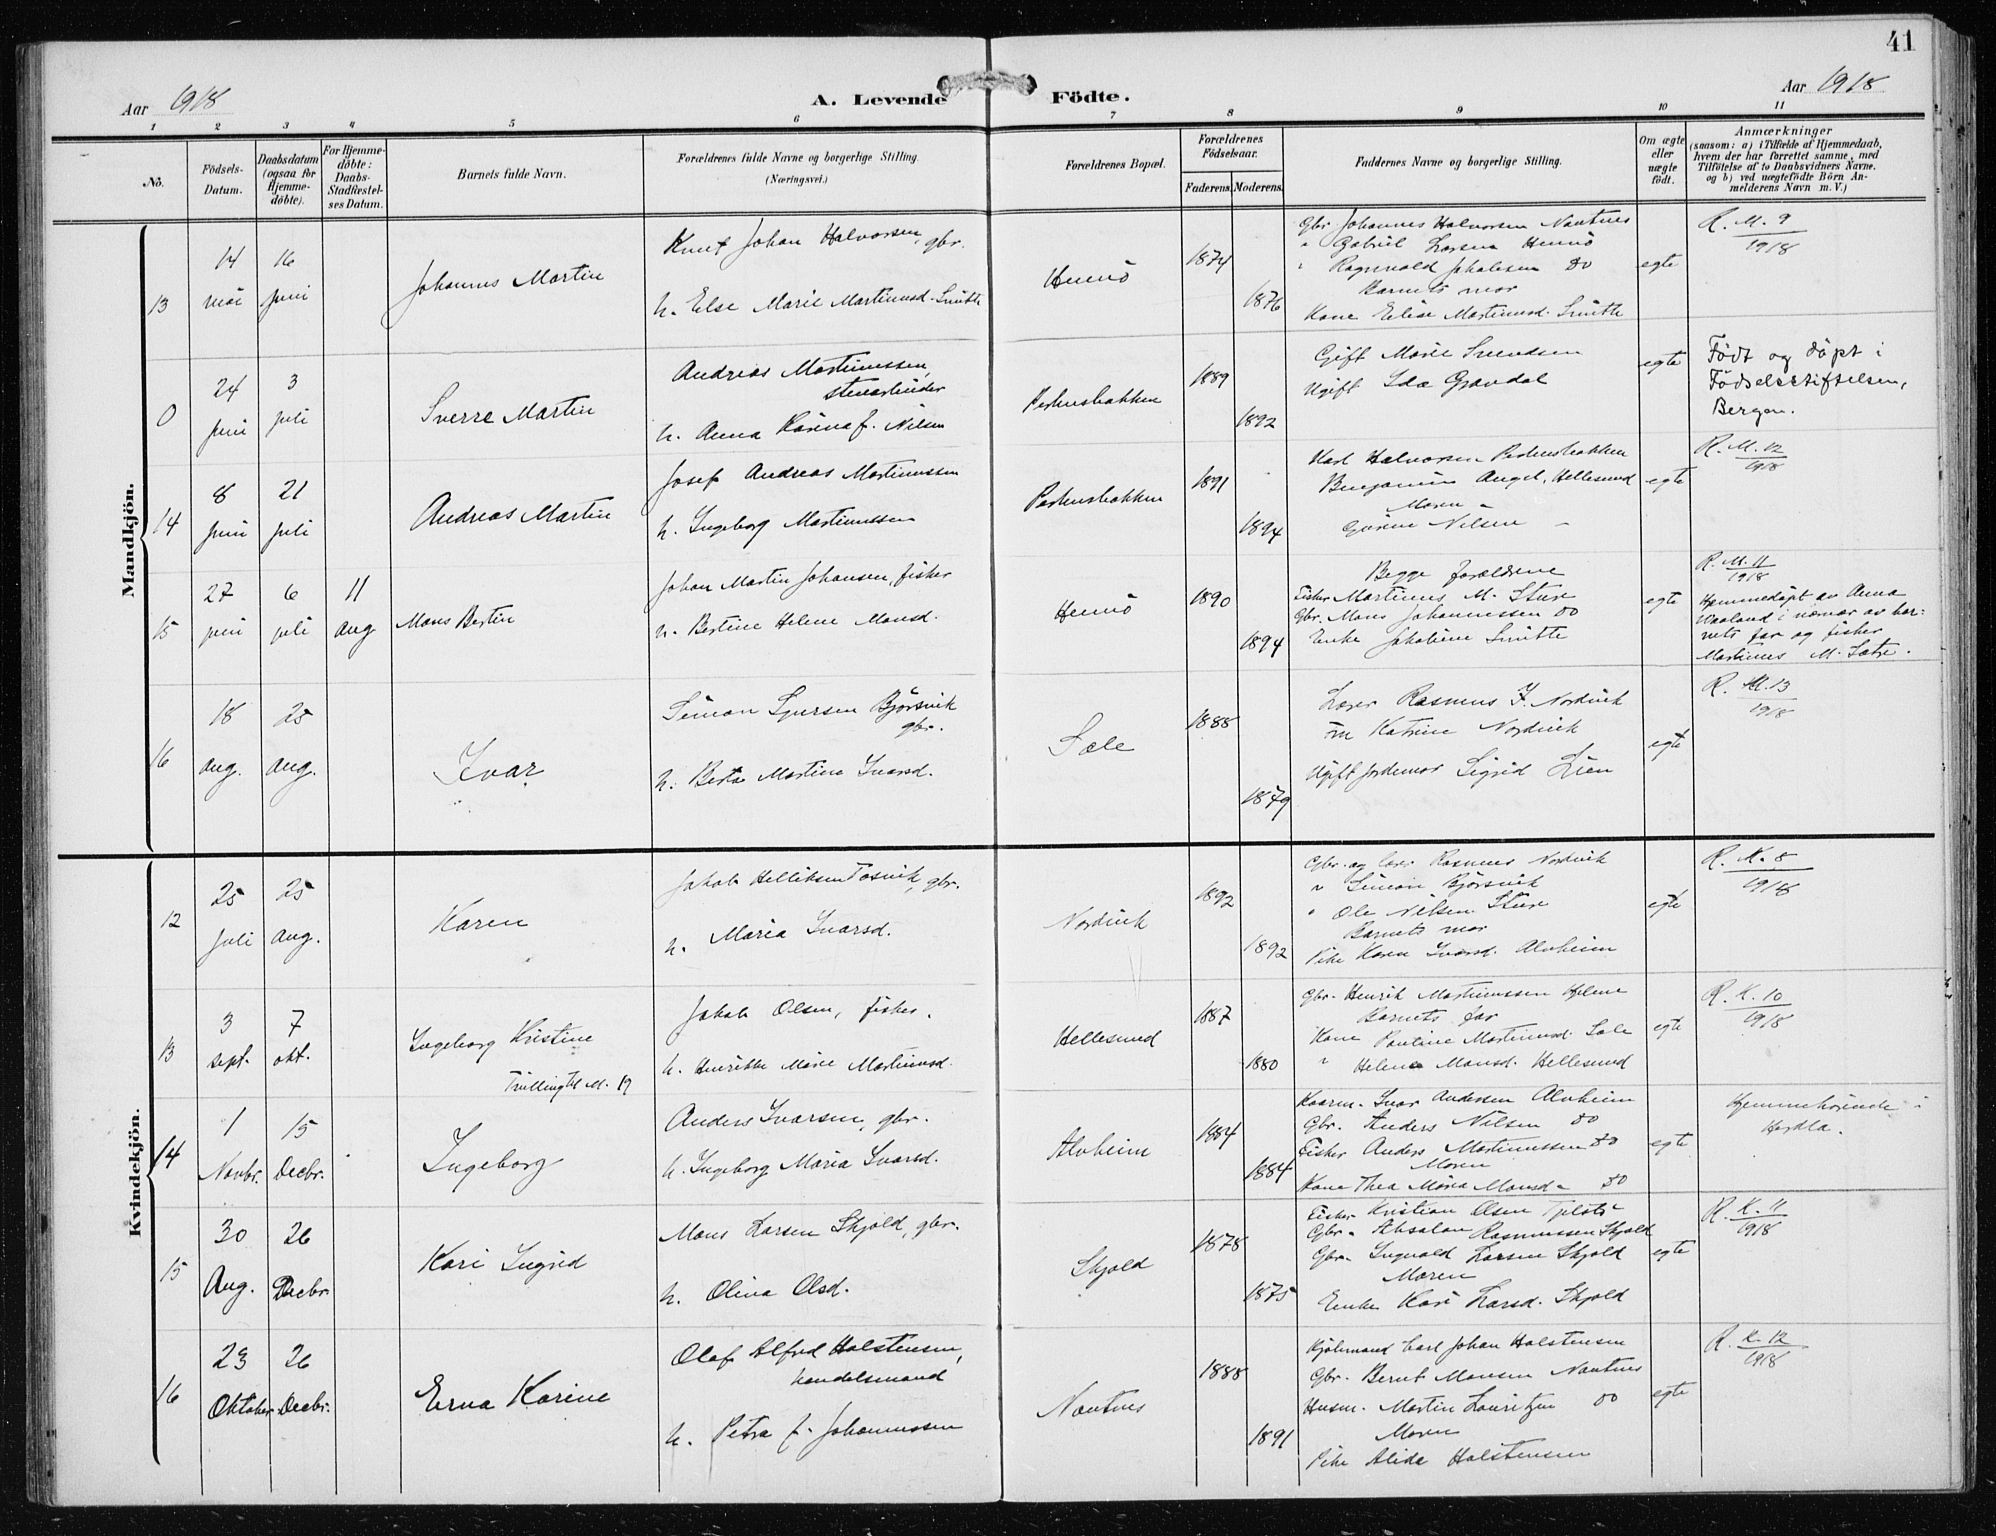 41
Aar 1918
A. Levende Födte.
Aar 1918
1 2 3 4 5 6 7 8 9 10 11
No.
Födsels-Datum.
Daabsdatum (ogsaa for Hjemme-döbte).
For Hjemme-döbte: Daabs-Stadfæstel-ses Datum.
Barnets fulde Navn.
Forældrenes fulde Navne og borgerlige Stilling.
(Næringsvei.)
Forældrenes Bopæl.
Forældrenes Födselsaar.
Faderens. Moderens.
Faddernes Navne og borgerlige Stilling.
Om ægte eller uægte födt.
Anmærkninger
(saasom: a) i Tilfælde af Hjemmedaab,
hvem der har forrettet samme, med
Tilföielse af to Daabsvidners Navne.
og b) ved uægtefödte Börn An-
melderens Navn m. V.)
Mandkjön.
13
14 mai
16 juni
Johannes Martin
Knut Johan Halvorsen, gbr.
h. Else Marie Martinusd. Smitt
Hennö
1874
1876
Gbr. Johannes Halvorsen Nautnes
" Gabriel Larsen Hennö
" Ragnvald Jakobsen do
Barnets mor
Kone Elise Martinusd. Smitt
egte
R. M. 9
1918
0
24 juni
3 juli
Sverre Martin
Andreas Martinussen,
stenarbeider
h. Anna Karina f. Nilsen
1889
1892
Gift Marie Svendsen
Ugift Ida Gravdal
egte
Födt og döpt i
Födselsstiftelsen,
Bergen.
14
8 juni
21 juli
Andreas Martin
Josef Andreas Martinussen
h. Ingeborg Martinussen
1891
1894
Karl Halvorsen
Benjamin Angel, Hellesund
Moren
Nilsen
egte
R. M. 12
1918
15
27 juni
6 juli
11 aug
Mons Bertin
Johan Martin Johansen, fisker
h. Bertine Helene Monsd.
Hennö
1890
1894
Begge forældrene
Fisker Martinus M. Sture
Gbr. Mons Johannessen do
Enke Jakobine Smitt
egte
R. M. 11
1918
Hjemmedöpt av Anna
Waaland i nærvær av bar-
nets far og fisker
Martinus M.
16
18 aug.
25 aug.
Ivar
Simon Sjursen Björsvik
gbr.
h. Berta Martina Ivarsd.
Sæle
1888
1879
Lærer Rasmus I. Nordvik
Fru Katrine Nordvik
Ugift jordemor Sigrid Lien
egte
R. M. 13
1918
Kvindekjön.
12
25 juli
25 aug.
Karen
Jakob Helliksen Tosvik, gbr.
h. Maria Ivarsd.
Nordvik
1892
1892
Gbr. og lærer Rasmus Nordvik
" Simon Björsvik
" Ole Nilsen Sture
Barnets mor
Pike Karen Ivarsd. Alvheim
egte
R. K. 8
1918
13
3 sept.
7 okt.
Ingeborg Kristine
Tvilling til M. 19
Jakob Olsen, fisker.
h. Henrikke Marie Martinusd.
Hellesund
1887
1880
Gbr. Henrik Martinussen Hjelme
Barnets far
Kone Pauline Martinusd. Sæle
" Helene Monsd. Hellesund
egte
R. K. 10
1918
14
1 Novbr.
15 Decbr.
Ingeborg
Anders Ivarsen, gbr.
h. Ingeborg Maria Ivarsd.
Alvheim
1884
1884
Kaarm. Ivar Andersen Alvheim
Gbr. Anders Nilsen do
Fisker Anders Martinussen do
Moren
Kone Thea Maria Monsd. do
egte
Hjemmehörende i
Herdla.
15
30 Aug.
26 Decbr.
Kari Ingrid
Mons Larsen Skjold, gbr.
h. Olina Olsd.
Skjold
1878
1875
Fisker Kristian Olsen
Gbr. Absalon Rasmussen Skjold
Gbr. Ingvald Larsen Skjold
Moren
Enke Kari Larsd. Skjold
egte
R. K. 11
1918
16
23 Oktober
26 Decbr.
Erna Karine
Olaf Alfred Holstensen,
handelsmand
h. Petra f. Johannessen
Nautnes
1888
1891
Kjöbmand Carl Johan Holstensen
Gbr. Bernt Monsen Nautnes
Husm. Martin Lauritzen do
Moren
Pike Alida Holstensen
egte
R. K. 12
1918